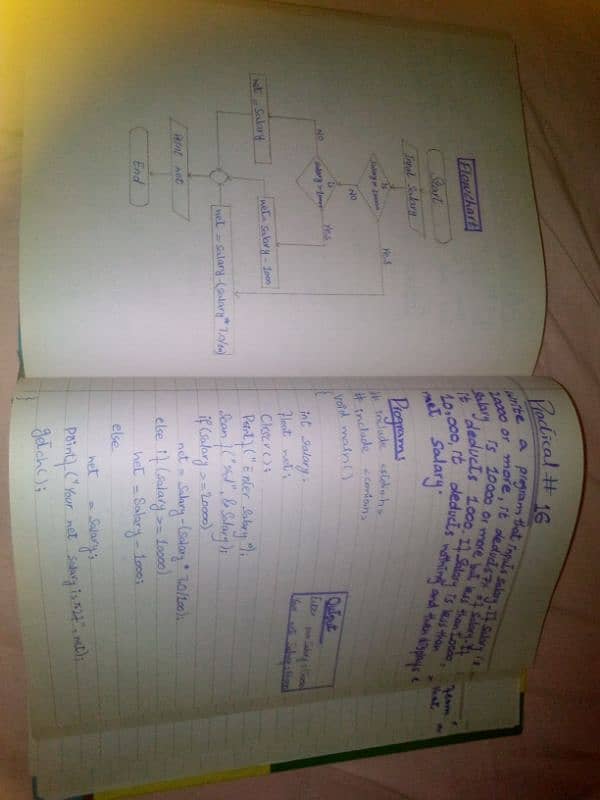 Practical # 16
Write a program that inputs salary. If salary is
20000 or more, it deducts 7% of
salary is 10000 or more but less than 20000,
it deducts 1000. If salary is less than
10,000, it deducts nothing and then displays
net salary.
Programs
# include <stdio.h>
# include <conio.h>
void main()
{
int salary;
float net;
Clrscr();
Printf("Enter Salary");
Scanf("%d", &Salary);
if (Salary >= 20000)
net = Salary - (Salary * 7.0/100);
else if (Salary >= 10000)
net = Salary - 1000;
else
net = Salary;
printf("Your net salary is %f", net);
getch();
}
Output
Flowchart
Start
Input Salary
Is
Yes
NO
Is
Yes
NO
net = Salary
net = salary - 1000
net = salary - (salary * 7.0/100)
Print net
End